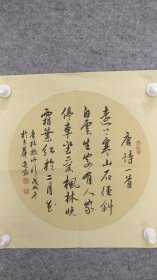 唐诗一首
远上寒山石径斜
白云生处有人家
停车坐爱枫林晚
霜叶红于二月花
唐杜牧山行戊戌年